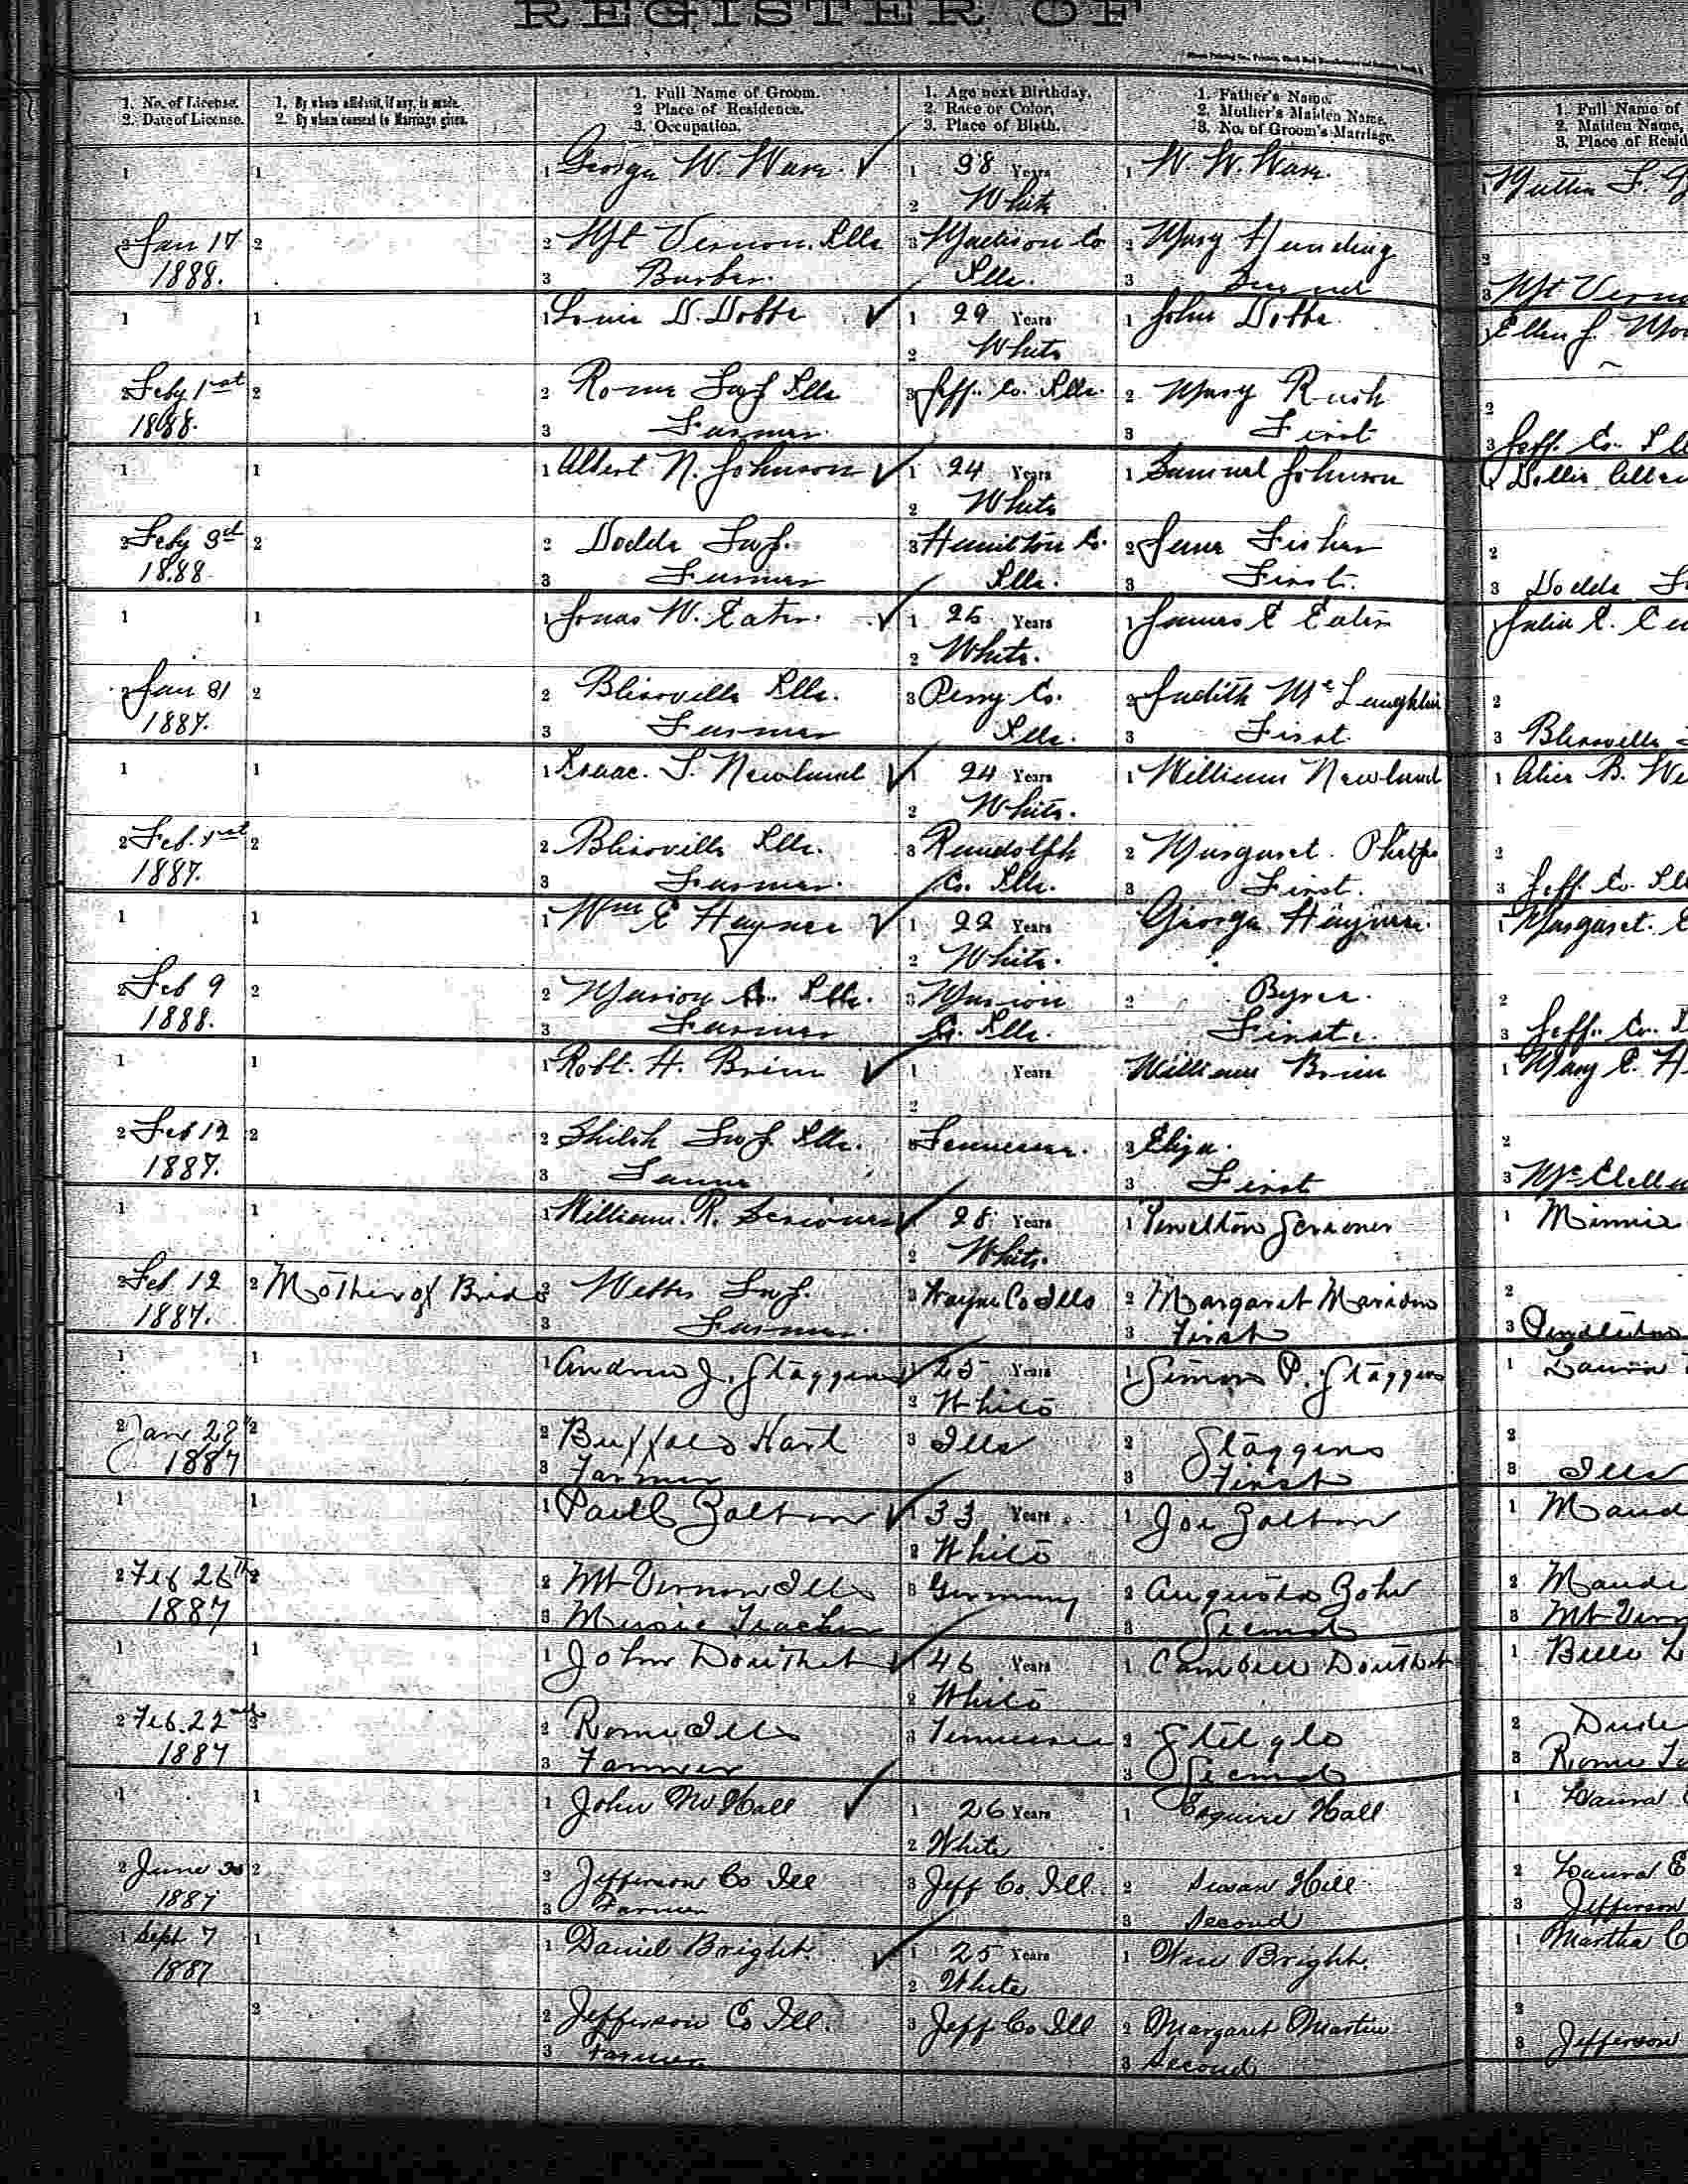 REGISTER OF
1. No. of License.
2. Date of License.
1. By whom affidavit, if any, is made.
2. By whom consent to Marriage given.
1. Full Name of Groom.
2 Place of Residence.
3. Occupation.
1. Age next Birthday.
2. Race or Color.
3. Place of Birth.
1. Father's Name.
2. Mother's Maiden Name.
3. No. of Groom's Marriage.
1. Full Name of
2. Maiden Name,
3. Place of Resid
1 1 1 George W. Ware ✓ 1 38 Years 1 W. W. Ware
2 White
2 Jan 17 2 2 Mt Vernon. Ills 3 Madison Co 2 Mary
1888. 3 Barber. Ills. 3
3 Mt Verno
1 1 1 Louis D. Dobbs ✓ 1 29 Years 1 John Dobbs Ellen J. Moo
2 White
2 Feby 1st 2 2 Rome Twp Ills 3 Jeff. Co. Ills. 2 Mary Rush 2
1888. 3 Farmer. 3 First 3 Jeff. Co. Ill
1 1 1 Albert N. Johnson ✓ 1 24 Years 1 Samuel Johnson Dollie Allen
2 White
2 Feby 3rd 2 2 Dodds Twp. 3 Hamilton Co. 2 Jane Fisher 2
1888 3 Farmer Ills. 3 First. 3 Dodds T
1 1 1 Jonas W. Eaton. ✓ 1 25 Years 1 James E Eaton Julia E.
2 White.
2 Jan 31 2 2 Blissville Ills. 3 Perry Co. 2 Judith McLaughlin 2
1887. 3 Farmer Ills. 3 First. 3 Blissville
1 1 1 Isaac. S. Newland ✓ 1 24 Years 1 William Newland 1 Alice B. We
2 White.
2 Feb. 1st 2 2 Blissville Ills. 3 Randolph 2 Margaret. Phelps 2
1887. 3 Farmer. Co. Ills. 3 First. 3 Jeff. Co. Ill
1 1 1 Wm E Haynes ✓ 1 22 Years George Haynes. 1 Margaret.
2 White.
2 Feb 9 2 2 Marion Co. Ills. 3 Marion 2 Byrea. 2
1888. 3 Farmer Co. Ills. First. 3 Jeff. Co.
1 1 1 Robt. H. Brim ✓ 1 Years William Brim 1 Mary E. H
2
2 Feb 12 2 2 Shiloh Twp Ills. 3 Tennessee. 2 Eliza. 2
1887. 3 Farmer 3 First 3 McClella
1 1 1 William. R. ✓ 28 Years 1 1 Minnie
2 White.
2 Feb 12 2 Mother of Bride 2 Webber Twp. 3 Wayne Co Ills 2 Margaret 2
1887. 3 Farmer. 3 First 3 Pendleton
1 1 1 Andrew J. Staggers ✓ 25 Years 1 Simon P. Staggers 1 Laura
2 White
2 Jan 28th 2 2 Buffalo Hart 3 Ills 2 Staggens 2
1887 3 Farmer 3 First 3 Ills
1 1 1 Paull Zalton ✓ 1 33 Years 1 Joe Zalton 1 Maud
2 White
2 Feb 26th 2 2 Mt Vernon Ills 3 Germany 2 Augusta Zohr 2 Maude
1887 3 Music Teacher 3 Second 3 Mt Vern
1 1 1 John Douthet ✓ 1 46 Years 1 Cambell Douthet 1 Belle
2 White
2 Feb. 22nd 2 2 Rome Ills 3 Tennessee 2
1887 3 Farmer 3 Second 3 Rome
1 1 1 John M Hall ✓ 1 26 Years 1 Esquire Hall 1 Laura
2 White
2 June 30 2 2 Jefferson Co Ill 3 Jeff Co. Ill. 2 Susan Hill 2 Laura E
1887 3 Farmer 3 Second 3 Jefferson
1 Sept. 7 1 1 Daniel Bright. ✓ 1 25 Years 1 Wm Bright. 1 Martha C
1887 2 White
2 2 Jefferson Co Ill. 3 Jeff Co Ill 2 Margaret Martin 2
3 Farmer 3 Second 3 Jefferson